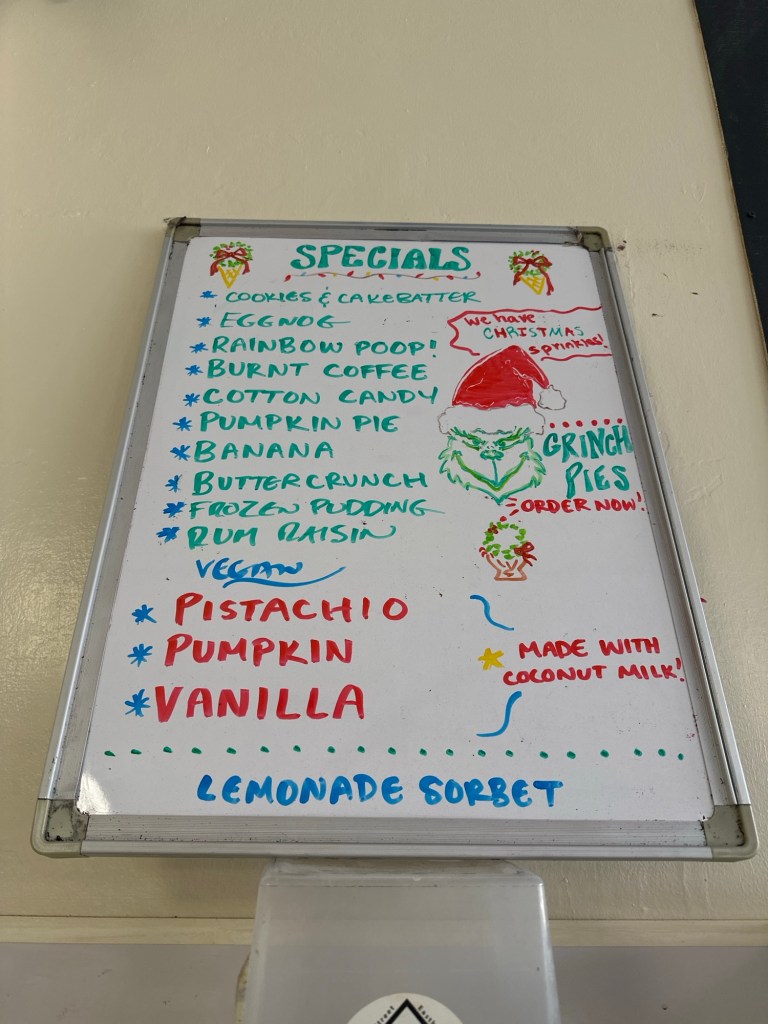 SPECIALS
* COOKIES & CAKEBATTER
* EGGNOG
* RAINBOW POOP!
* BURNT COFFEE
* COTTON CANDY
* PUMPKIN PIE
* BANANA
* BUTTERCRUNCH
* FROZEN PUDDING
* RUM RAISIN
We have
CHRISTMAS
sprinkles!
GRINCH
PIES
ORDER NOW!
VEGAN
* PISTACHIO
* PUMPKIN
* VANILLA
* MADE WITH
COCONUT MILK!
LEMONADE SORBET